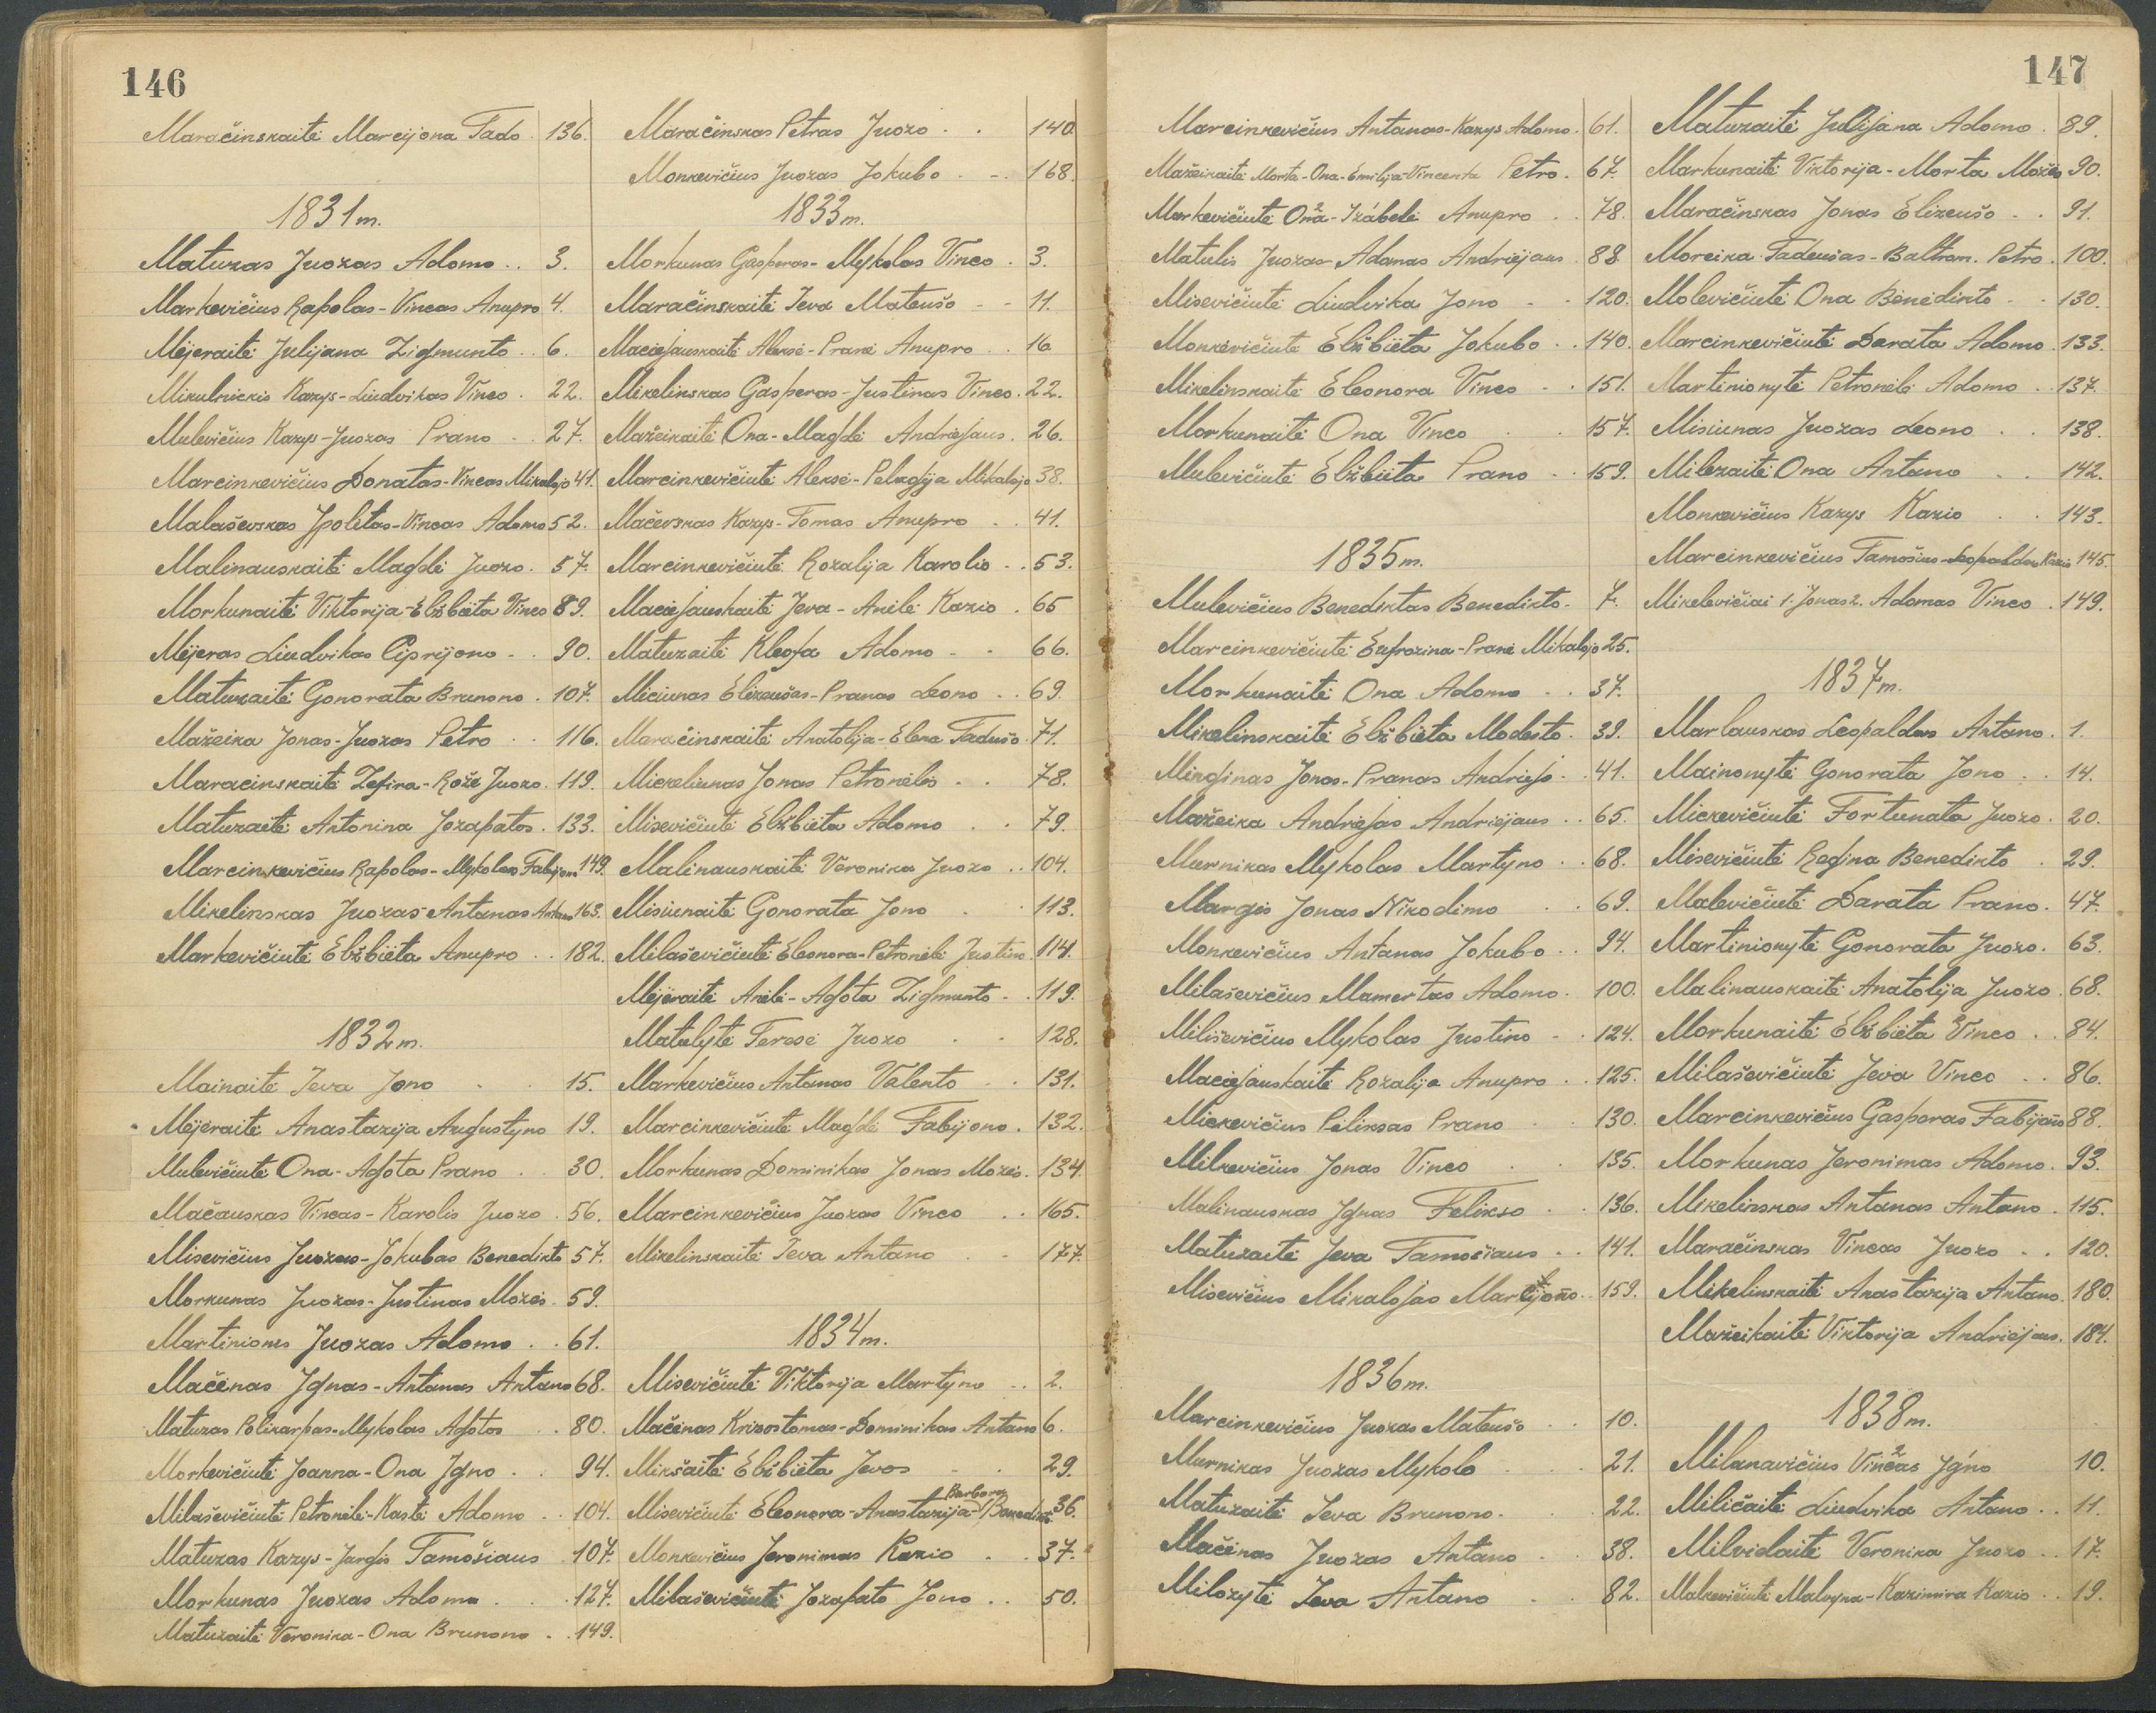 146
Maračinskaitė Marcijona Tado 136.
1831 m.
Matuzas Juozas Adomo .. 3.
Markevičius Rapolas-Vincas Anupro 4.
Mejeraitė Julijana Zigmunto .. 6.
Mikulnickis Kazys-Liudvikas Vinco . 22.
Mulevičius Kazys-Juozas Prano .. 27.
Marcinkevičius Donatas-Vincas Mikalojo 41.
Malaševskas Ipolitas-Vincas Adomo 52.
Malinauskaitė Magdė Juozo . 57.
Morkunaitė Viktorija-Elžbieta Vinco 89.
Mejeras Liudvikas Ciprijono .. 90.
Matuzaitė Gonorata Brunono . 107.
Mažeika Jonas-Juozas Petro .. 116.
Maracinskaitė Zefira-Rožė Juozo . 119.
Matuzaitė Antonina Jozapatos . 133.
Marcinkevičius Rapolas-Mykolas Fabijono 149.
Mikelinskas Juozas-Antanas Antano 163.
Markevičiutė Elžbieta Anupro .. 182.
1832 m.
Mainaitė Ieva Jono . . 15.
Mejeraitė Anastazija Augustyno 19.
Mulevičiutė Ona-Agota Prano . 30.
Mačauskas Vincas-Karolis Juozo . 56.
Misevičius Juozas-Jokubas Benedikto 57.
Morkunas Juozas-Justinas Mozės . 59.
Martinionis Juozas Adomo .. 61.
Mačėnas Ignas-Antanas Antano 68.
Matuzas Polikarpas-Mykolas Agotos .. 80.
Morkevičiutė Joanna-Ona Igno .. 94.
Milaševičiutė Petronėlė-Kastė Adomo .. 104.
Matuzas Kazys-Jurgis Tamošiaus . 107.
Morkunas Juozas Adomo . . 127.
Matuzaitė Veronika-Ona Brunono .. 149.
Maračinskas Petras Juozo . . 140.
Monkevičius Juozas Jokubo . . 168.
1833 m.
Morkunas Gasperas-Mykolas Vinco . 3.
Maračinskaitė Ieva Mateušo .. 11.
Maciejauskaitė Aleksė-Pranė Anupro .. 16
Mikelinskas Gasperas-Justinas Vinco . 22.
Mažeikaitė Ona-Magdė Andriejaus . 26.
Marcinkevičiutė Aleksė-Pelagija Mikalojo 38.
Mačevskas Kazys-Tomas Anupro .. 41.
Marcinkevičiutė Rozalija Karolio .. 53.
Maciejauskaitė Jeva-Anilė Kazio . 65
Matuzaitė Kleofa Adomo . . 66.
Miciunas Elizeušas-Pranas Leono .. 69.
Maračinskaitė Anatolija-Elena Tadušo . 71.
Mickeliunas Jonas Petronėlės . . 78.
Misevičiutė Elžbieta Adomo . . 79.
Malinauskaitė Veronika Juozo .. 104.
Misiunaitė Gonorata Jono . . 113.
Milaševičiutė Eleonora-Petronėlė Justino . 114.
Mejeraitė Anėlė-Agota Zigmunto .. 119.
Matulytė Teresė Juozo . . 128.
Markevičius Antanas Valento .. 131.
Marcinkevičiutė Magdė Fabijono . 132.
Morkunas Dominikas Jonas Mozės . 134.
Marcinkevičius Juozas Vinco .. 165.
Mikelinskaitė Ieva Antano . . 177.
1834 m.
Misevičiutė Viktorija Martyno .. 2.
Mačėnas Krizostomas-Dominikas Antano 6.
Mikšaitė Elžbieta Jevos . . 29.
Barbora
Misevičiutė Eleonora-Anastazija-V Benedikto 36.
Monkevičius Jeronimas Kazio .. 37.
Milaševičiutė Jozapata Jono .. 50.
147
Marcinkevičius Antanas-Kazys Adomo . 61.
Mažeikaitė Morta-Ona-Emilija-Vincenta Petro . 67.
Markevičiutė Ona 2-Izabelė Anupro .. 78.
Matulis Juozas-Adanas Andriejaus . 88
Misevičiutė Liudvika Jono . . 120.
Monkevičiutė Elžbieta Jokubo .. 140.
Mikelinskaitė Eleonora Vinco .. 151.
Morkunaitė Ona Vinco . . 157.
Mulevičiutė Elžbieta Prano .. 159.
1835 m.
Mulevičius Benediktas Benedikto . 7.
Marcinkevičiutė Eufrozina-Pranė Mikalojo 25.
Morkunaitė Ona Adomo .. 37.
Mikelinskaitė Elžbieta Modesto . 39.
Minginas Jonas-Pranas Andriejo .. 41.
Mažeika Andriejas Andriejaus .. 65.
Murnikas Mykolas Martyno .. 68.
Margis Jonas Nikodimo . . 69.
Monkevičius Antanas Jokubo .. 94.
Milaševičius Mamertas Adomo . 100.
Miliševičius Mykolas Justino .. 124.
Maciejauskaitė Rozalija Anupro .. 125.
Mickevičius Peliksas Prano . . 130.
Milkevičius Jonas Vinco . . 135.
Malinauskas Ignas Felikso . . 136.
Matuzaitė Jeva Tamošiaus .. 141.
Misevičius Mikalojas Marcijono . 159.
1836 m.
Marcinkevičius Juozas Mateušo .. 10.
Murnikas Juozas Mykolo . . 21.
Matuzaitė Ieva Brunono . . 22.
Mačėnas Juozas Antano . . 38.
Milozytė Ieva Antano . . 82.
Matuzaitė Julijana Adomo . 89.
Markunaitė Viktorija-Morta Mozės 90.
Maračinskas Jonas Elizeušo .. 91.
Moreika Tadeušas-Baltram. Petro . 100.
Molevičiutė Ona Benedikto .. 130.
Marcinkevičiutė Darata Adomo . 133.
Martinionytė Petronėlė Adomo .. 137.
Misiunas Juozas Leono . . 138.
Milezaitė Ona Antano . . 142.
Monkevičius Kazys Kazio . . 143.
Marcinkevičius Tamošius-Leopoldas Kazio 145.
Mikelevičiai 1. Jonas 2. Adomas Vinco . 149.
1837 m.
Marlauskas Leopaldas Antano . 1.
Mainonytė Gonorata Jono .. 14.
Mickevičiutė Fortunata Juozo . 20.
Misevičiutė Regina Benedikto . 29.
Malevičiutė Darata Prano . 47.
Martinionytė Gonorata Juozo . 63.
Malinauskaitė Anatolija Juozo . 68.
Morkunaitė Elžbieta Vinco .. 84.
Milaševičiutė Jeva Vinco .. 86.
Marcinkevičius Gasparas Fabijono 88.
Morkunas Jeronimas Adomo . 93.
Mikelinskas Antanas Antano . 115.
Maračinskas Vincas Juozo .. 120.
Mikelinskaitė Anastazija Antano . 180.
Mažeikaitė Viktorija Andriejaus . 184.
1838 m.
Milanavičius Vincas 2 Igno 10.
Miličaitė Liudvika Antano .. 11.
Milvidaitė Veronika Juozo .. 17.
Malkevičiutė Malvyna-Kazimira Kazio .. 19.